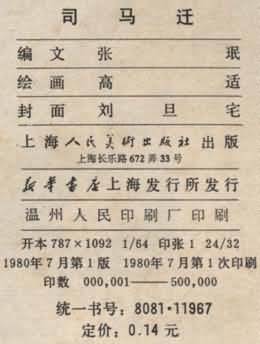 司马迁
编文 张珉
绘画 高适
封面 刘旦宅
上海人民美术出版社出版
上海长乐路672弄33号
新华书店上海发行所发行
温州人民印刷厂印刷
开本 787×1092 1/64 印张 1 24/32
1980年7月第1版 1980年7月第1次印刷
印数 000,001——500,000
统一书号：8081·11967
定价：0.14元